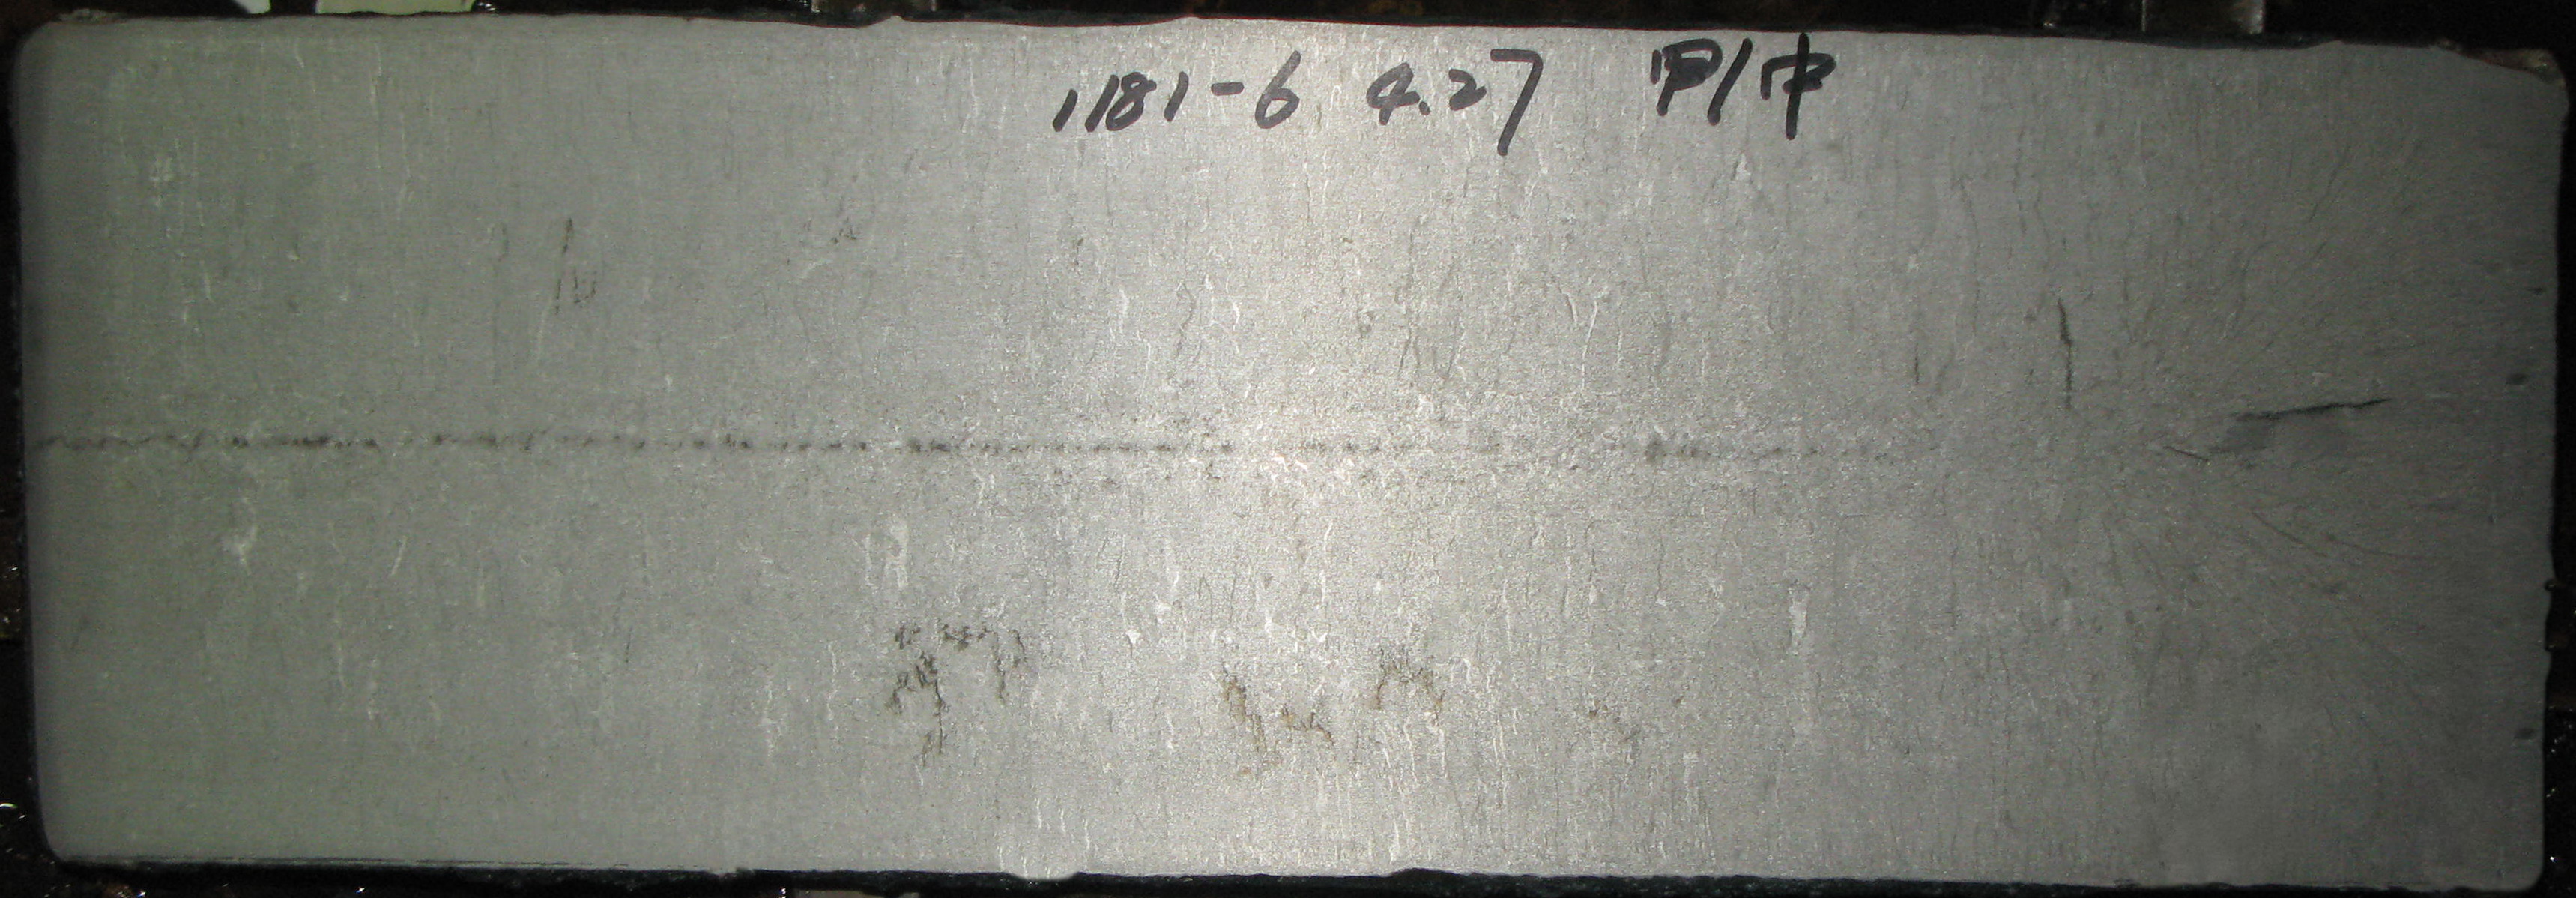 1181-6 4.27 甲/中